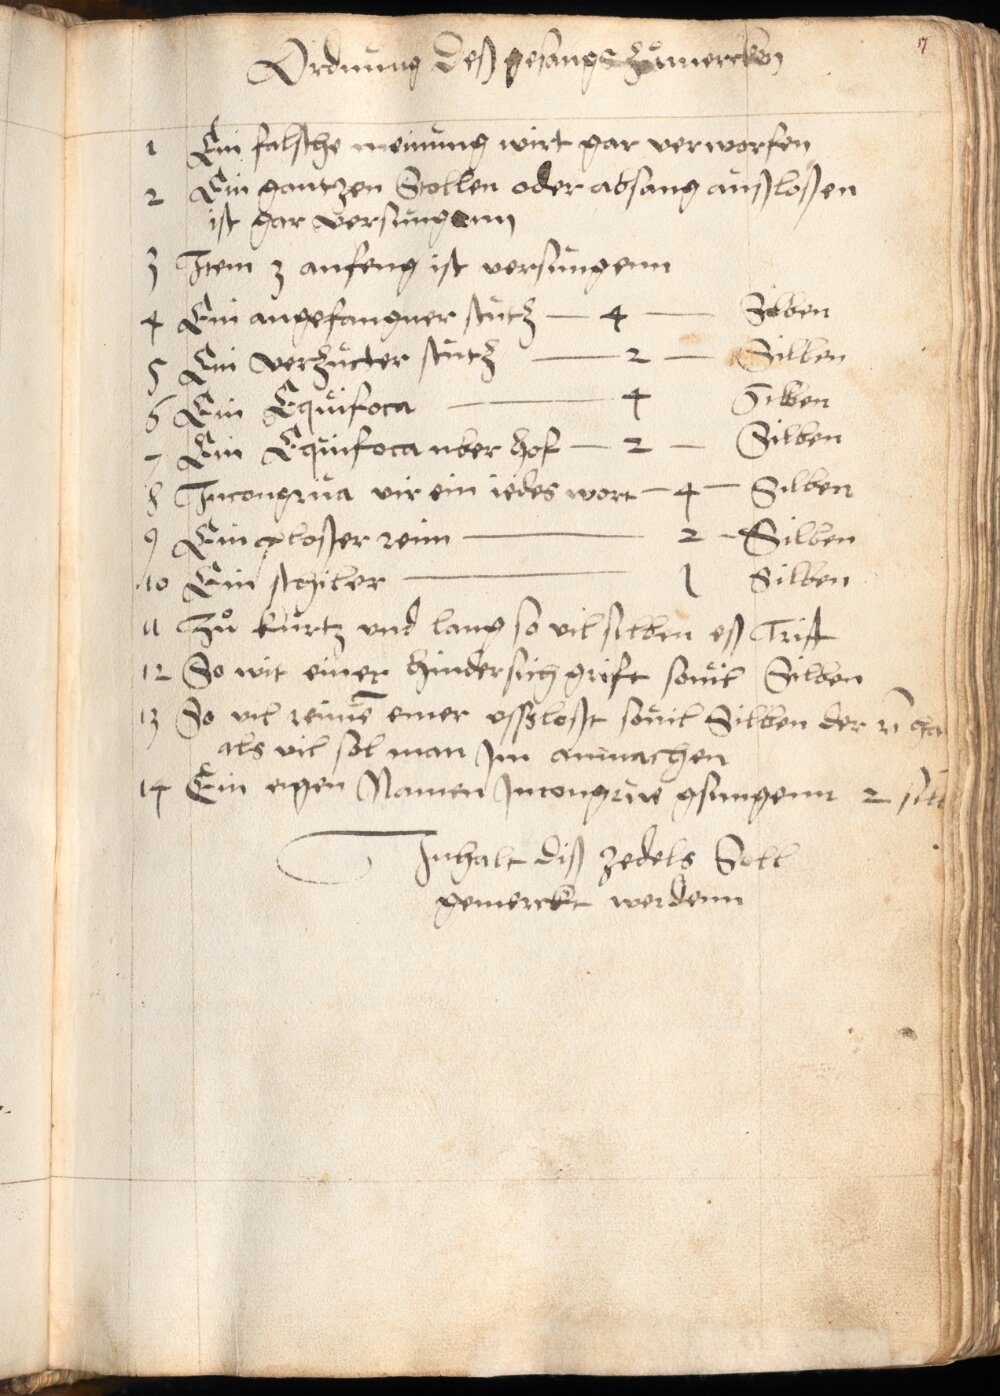 17
Ordnung deß gesangs zů mercken
1 Ein falsche meinung wirt gar verworfen
2 Ein gantzen Stollen oder absang außloßen
ist gar versungenn
3 Item 3 anfeng ist versungenn
4 Ein angefangner stutz — 4 — Silben
5 Ein verzuckter stutz — 2 — Silben
6 Ein Equifoca — 4 Silben
7 Ein Equifoca uber hof — 2 — Silben
8 Incongrua vir ein iedes wort — 4 — Silben
9 Ein ploßer reim — 2 — Silben
10 Ein schiler — 1 Silben
11 Zů kurtz vnd lang so vil silben eß Trift
12 So wit einer hindersich grift souil Silben
13 So vil reimē einer vssloßt souil Silben der
als vil sol man Im anmachen
14 Ein eigen Namen Incongrue gsungenn 2 silb
Inhalt diß zedels Soll
gemerckt werdenn